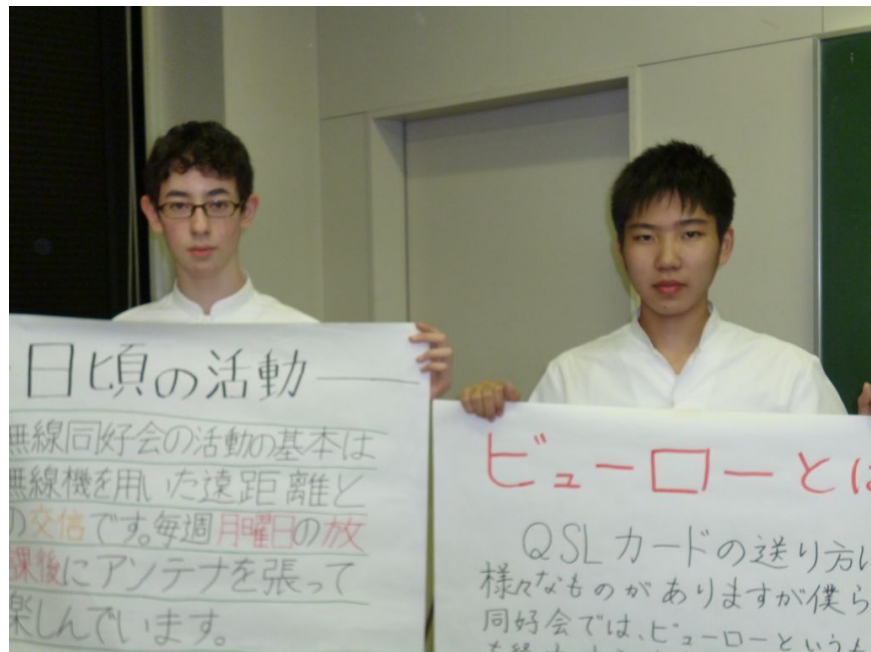 日頃の活動
無線同好会の活動の基本は
無線機を用いた遠距離と
の交信です。毎週月曜日の放
課後にアンテナを張って
楽しんでいます。
ビューローとは
QSLカードの送り方に
様々なものがありますが僕ら
同好会では、ビューローという